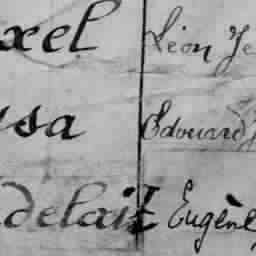 xel Léon Je
ssa Edouard J
delait Eugène